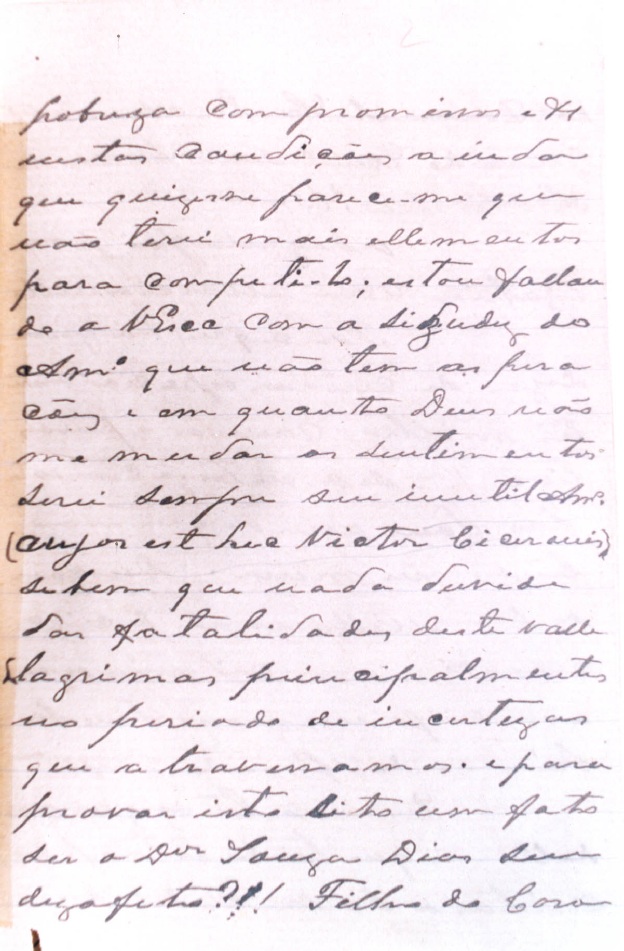 pobreza compromissos e &
nestas condições ainda
que quizesse parece-me que
não terei mais ellementos
para competi-lo; estou fallan
do a VExca com a sisudez do
Amº que não tem aspira
ções e em quanto Deus não
me mudar os sentimentos
serei sempre seu inutil Amº.
(cujos est hec Victor Cicer
se bem que nada duvide
das fatalidades deste valle
lagrimas principalmentes
no periodo de incertezas
que atravessamos. e para
provar isto sito um fato
ser o Dor Souza Dias seu
dezafeto?!! Filho do Coro